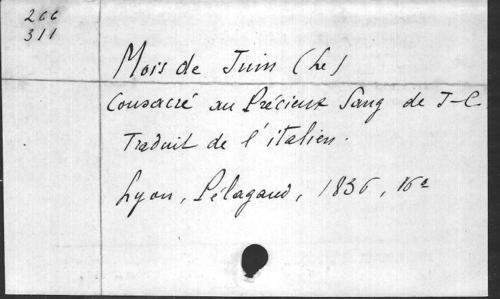 266
311
Mois de Juin (Le)
Consacré au Précieux Sang de J-C.
Traduit de l'italien.
Lyon, Pélagaud, 1836, 16º